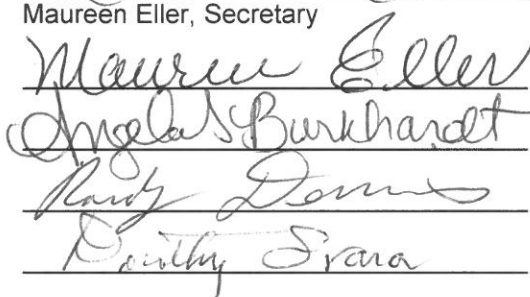 Maureen Eller, Secretary
Maureen Eller
Angela S Burkhardt
Randy Dennis
Dorothy Svara